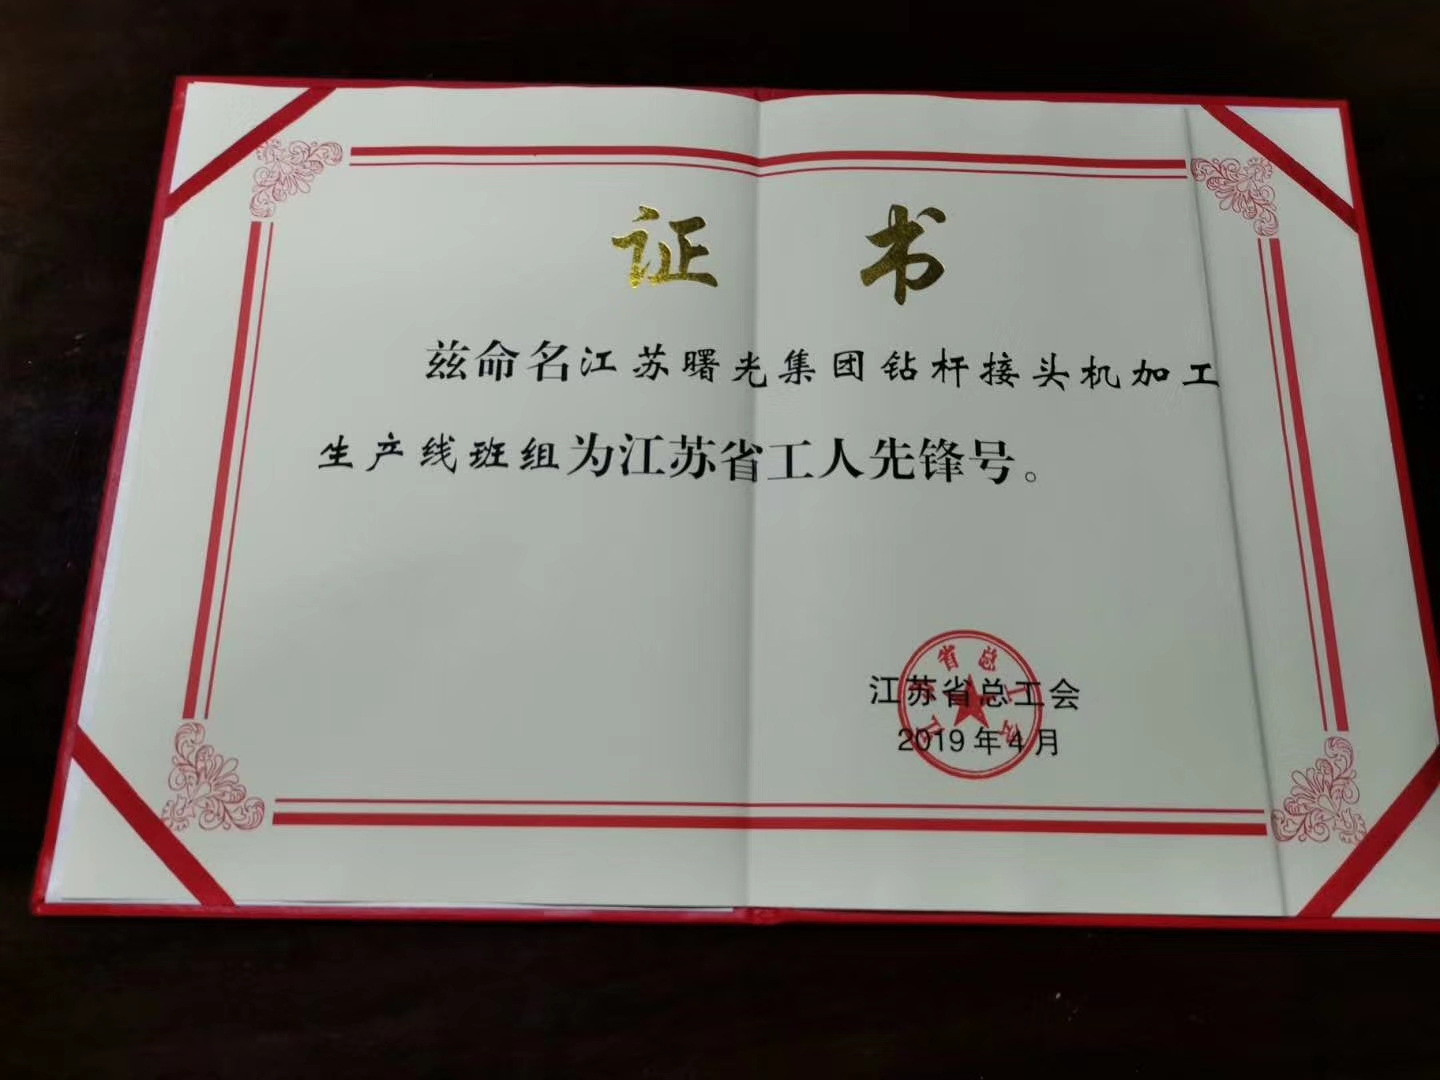 证书
兹命名江苏曙光集团钻杆接头机加工
生产线班组为江苏省工人先锋号。
江苏省总工会
2019年4月
江苏省总工会